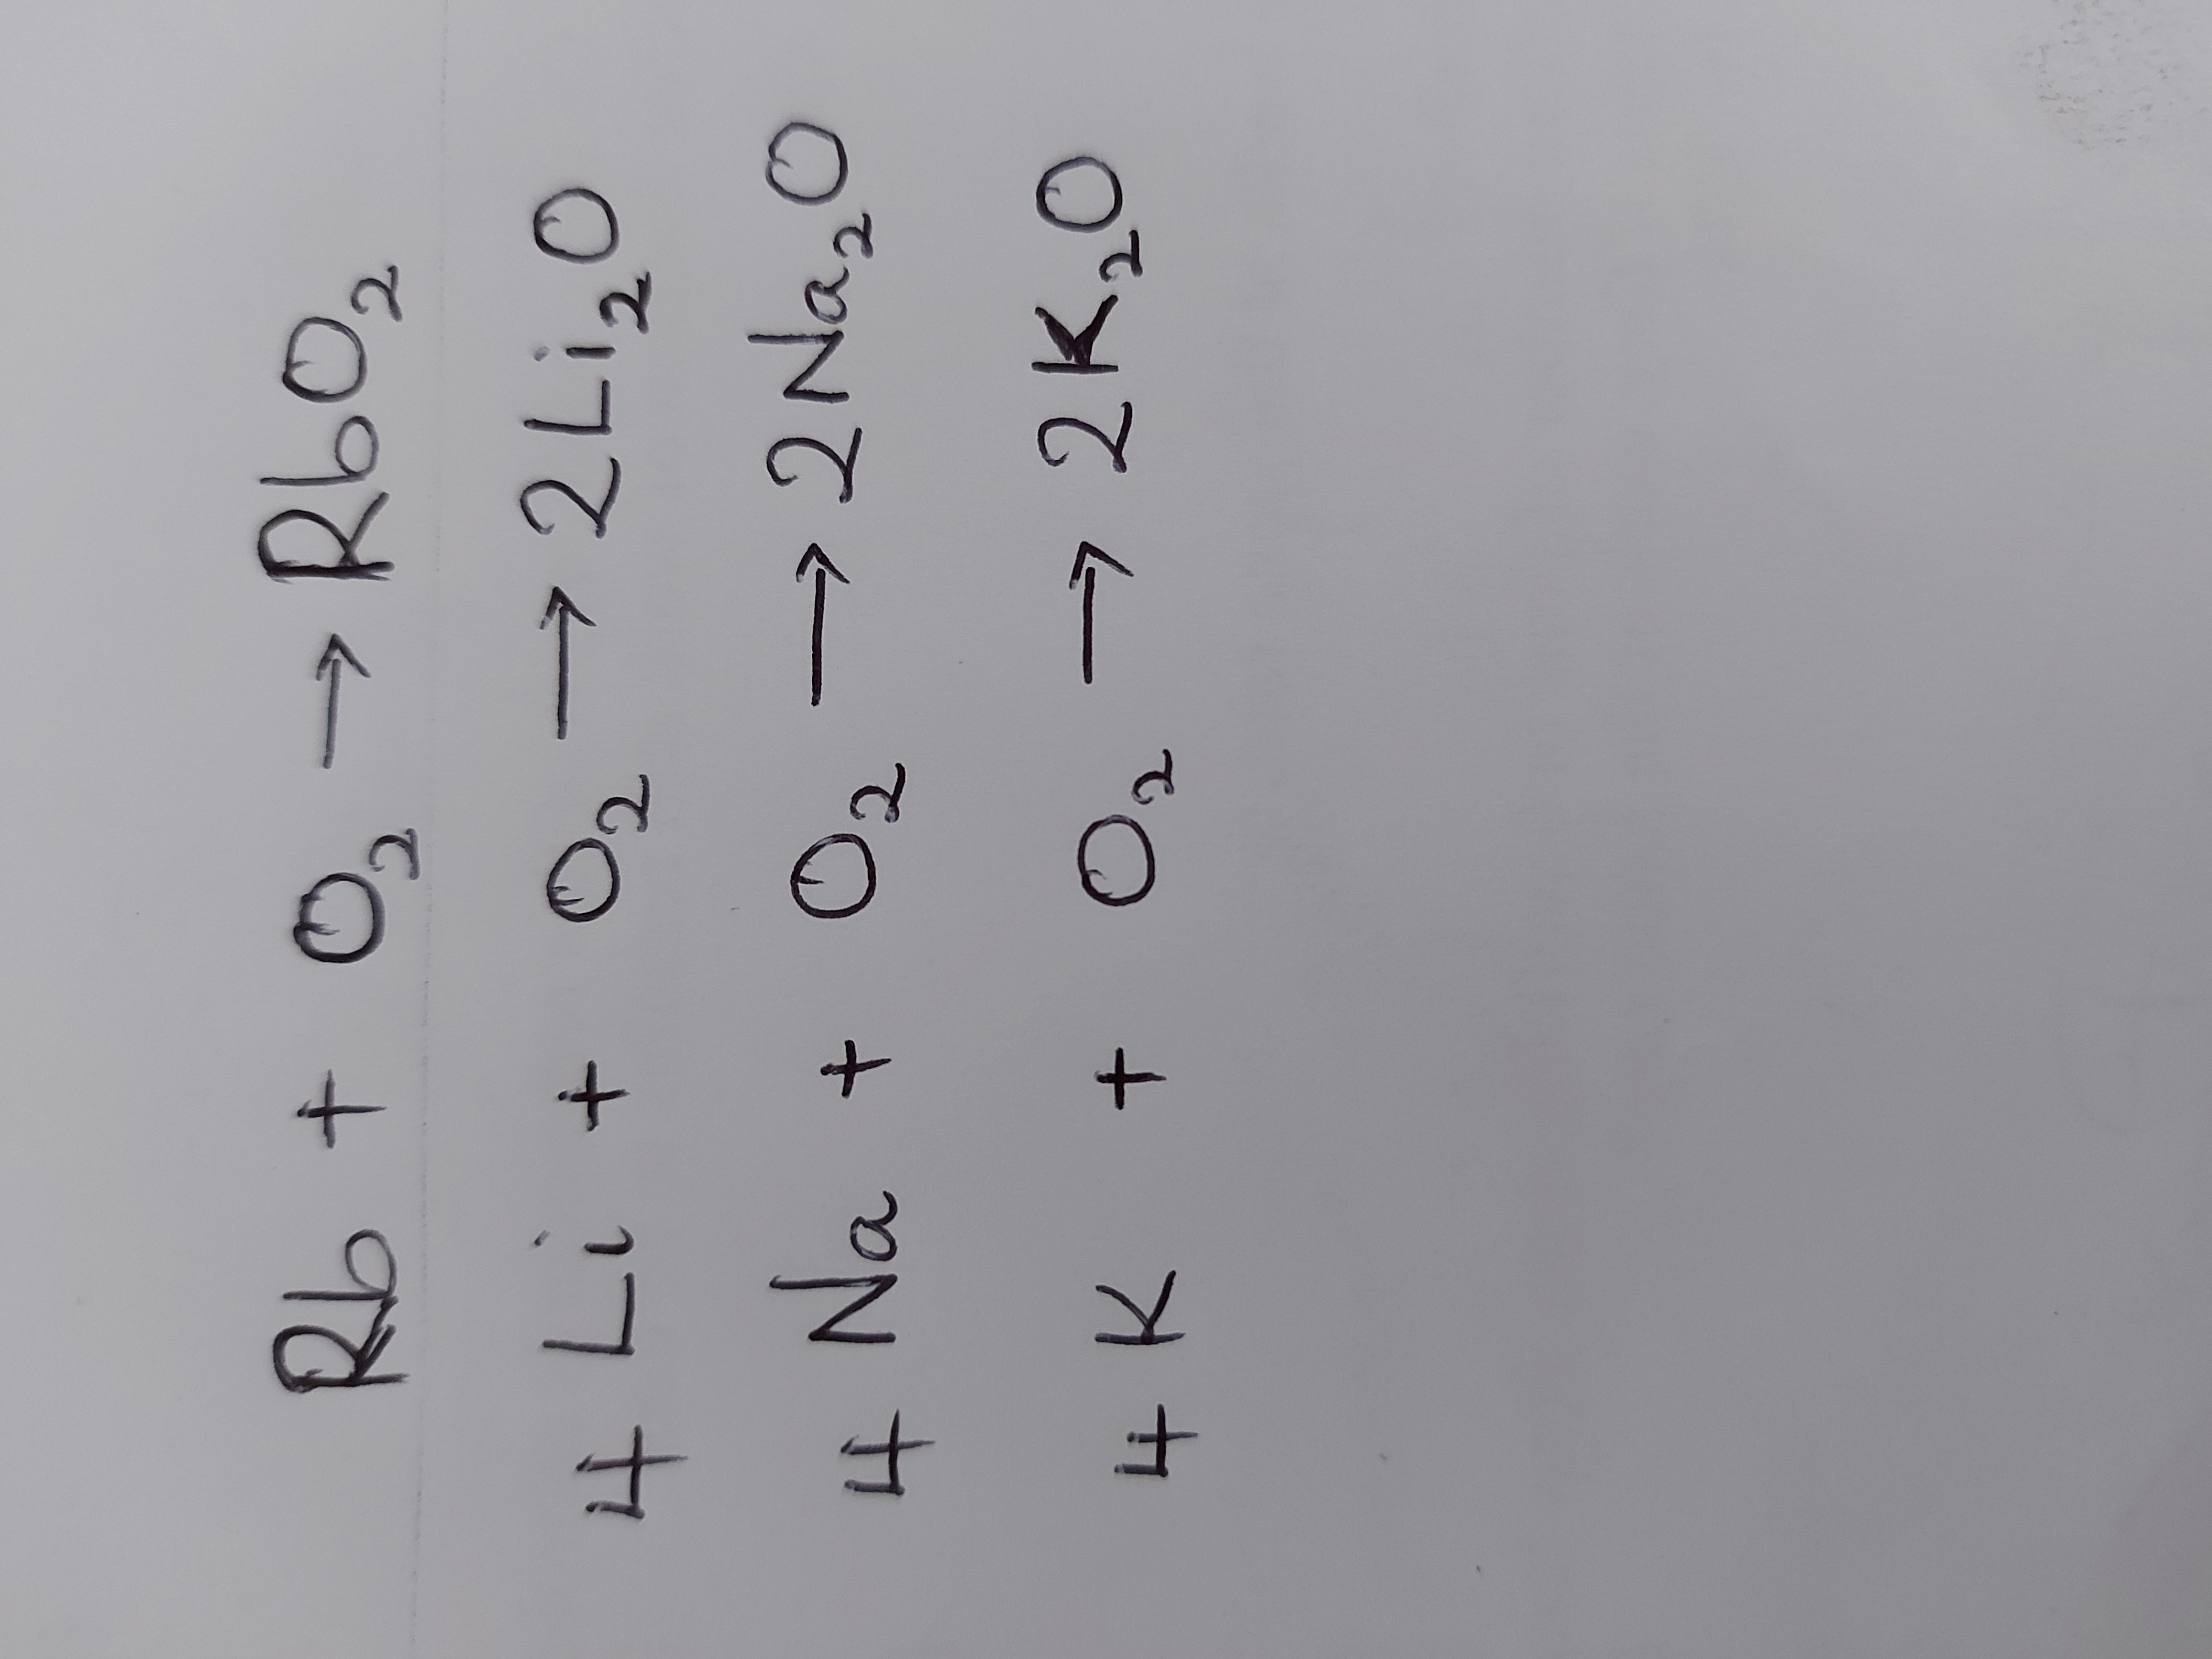 Rb + O₂ → RbO₂
4 Li + O₂ → 2Li₂O
4 Na + O₂ → 2Na₂O
4 K + O₂ → 2K₂O